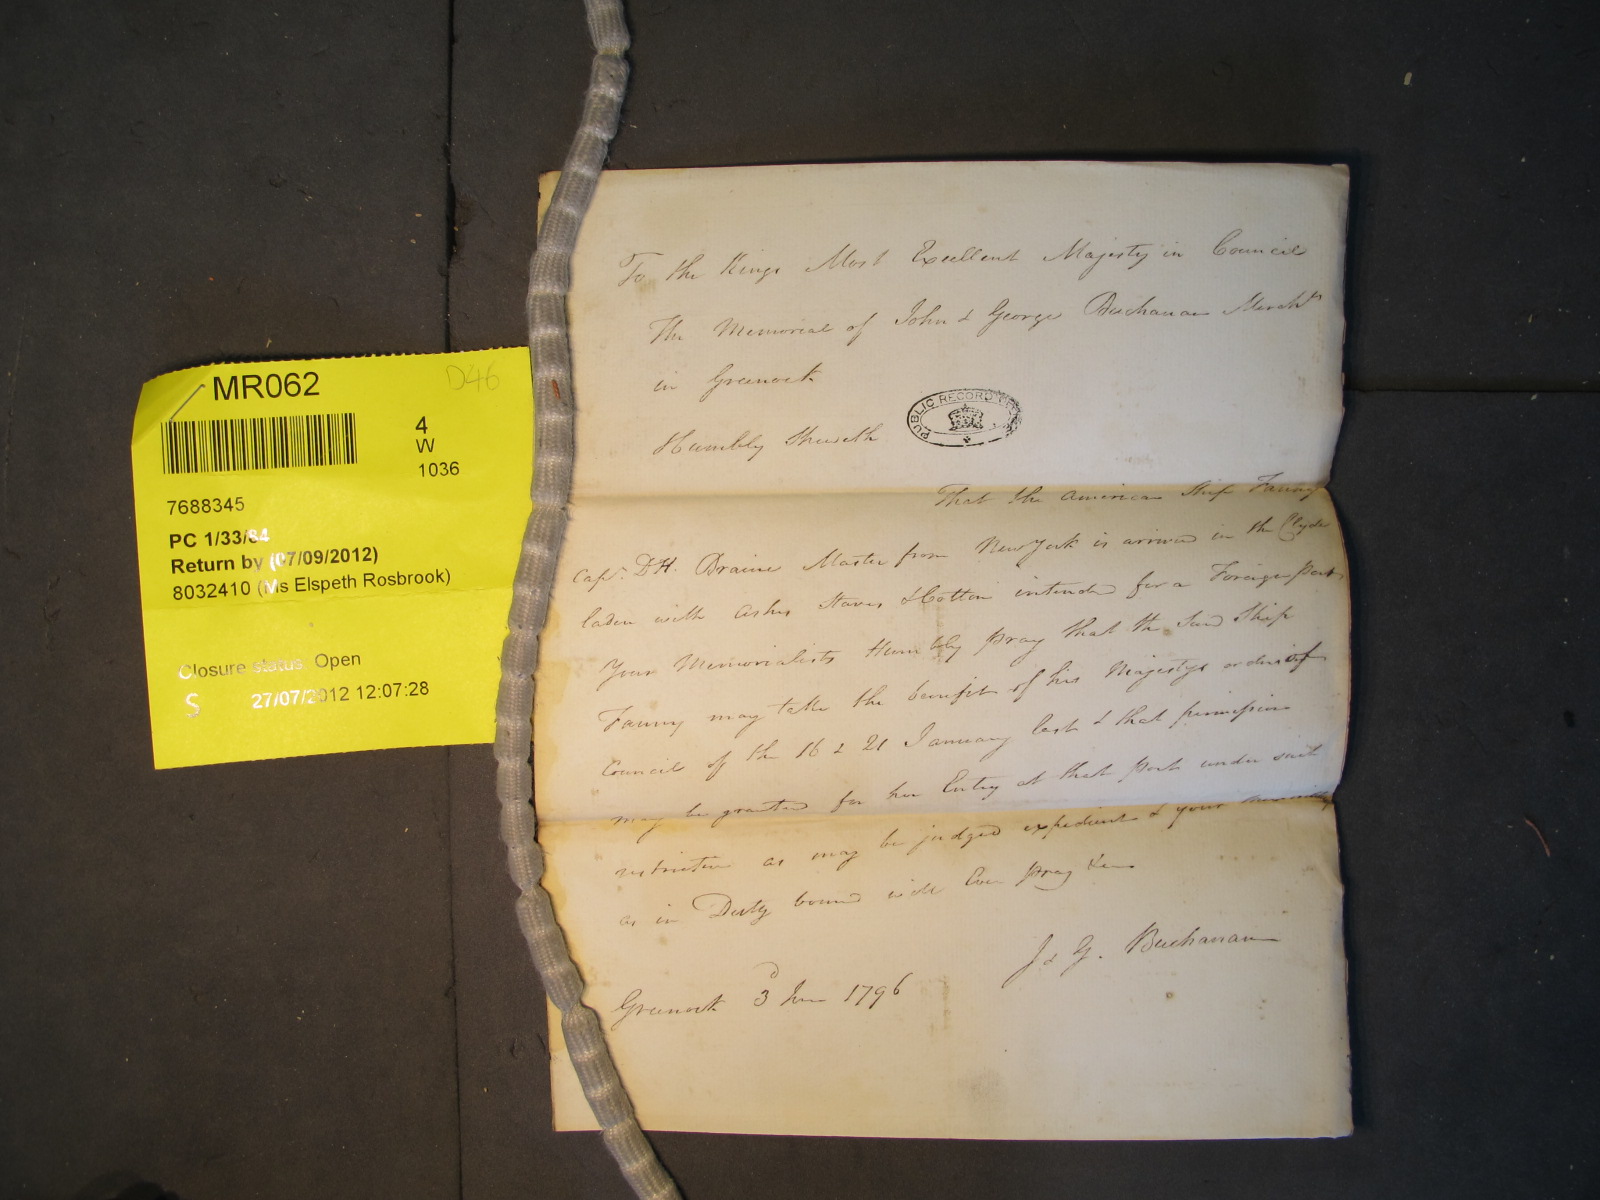 MR062
D46
4
W
1036
7688345
PC 1/33/84
Return by (07/09/2012)
8032410 (Ms Elspeth Rosbrook)
Closure status: Open
S 27/07/2012 12:07:28
To the Kings Most Excellent Majesty in Council
The Memorial of John & George Buchanan Mercht.s
in Greenock
Humbly Sheweth
PUBLIC RECORD OFFICE
That the American Ship Fanny
Capt. D.H. Braine Master from New York is arrived in the Clyde
laden with Ashes Staves & Cotton intended for a Foreign Port
Your Memorialists Humbly pray that the Said Ship
Fanny may take the benefit of his Majestys orders of
Council of the 16 & 21 January last & that permission
may be granted for her Entry at that port under such
restriction as may be judged expedient & your
as in Duty bound will Ever pray
J & G. Buchanan
Greenock 3d June 1796